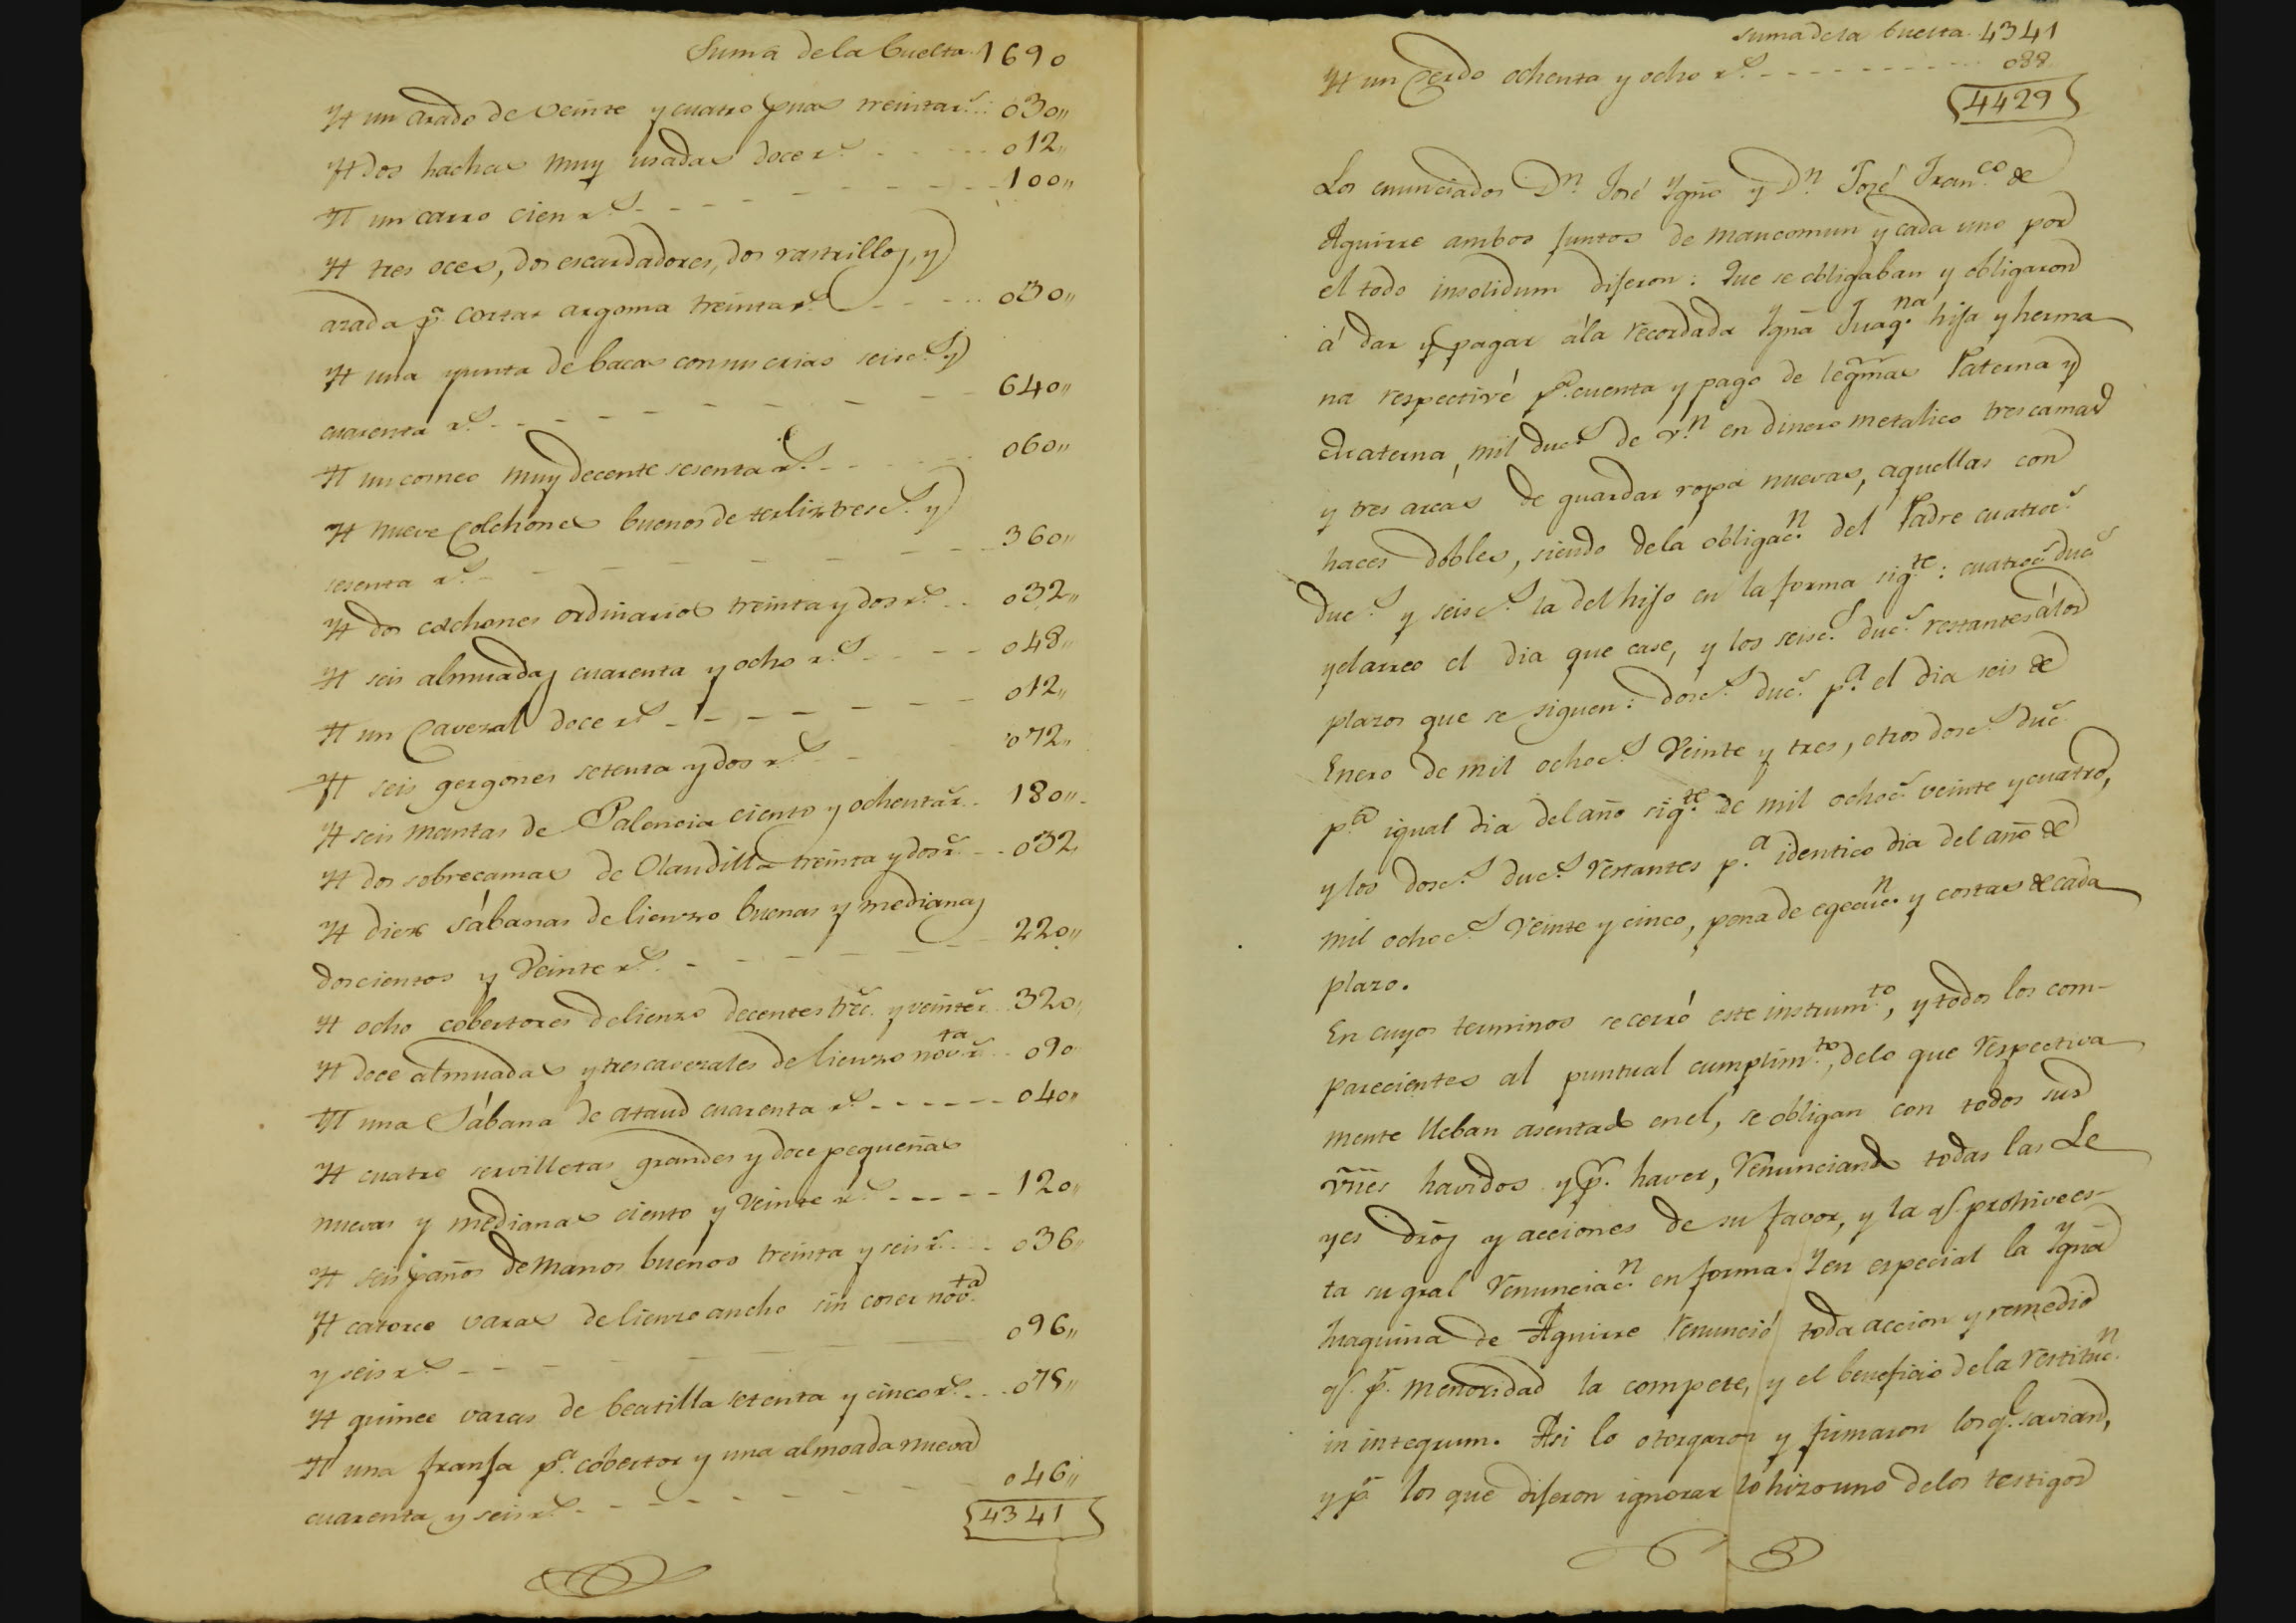 Suma de la buelta 1690
Yt un arado de veinte y cuatro puas treinta r.s 030"
Yt dos hachas muy usadas doce r.s - - - - 012"
Yt un carro cien r.s - - - - - - - 100"
Yt tres oces, dos escardadores, dos rastrillos, y
azada p.a cortar argoma treinta r.s - - - - 030"
Yt una yunta de bacas con sus crias seisc.s y
cuarenta r.s - - - - - - - - - 640"
Yt un corneo muy decente sesenta r.s - - - 060"
Yt nueve colchones buenos de terliz tresc.s y
sesenta r.s - - - - - - - - - 360"
Yt dos colchones ordinarios treinta y dos r.s - - 032"
Yt seis almuadas cuarenta y ocho r.s - - - - 048"
Yt un cavezal doce r.s - - - - - - - - 012"
Yt seis gergones setenta y dos r.s - - 072"
Yt seis mantas de Palencia ciento y ochenta r. 180"
Yt dos sobrecamas de Olandilla treinta y dos r. - - 032"
Yt diez sábanas de lienzo buenas y medianas
doscientos y veinte r.s - - - - - - - - 220"
Yt ocho cobertores de lienzo decentes trec. y veinte r. 320"
Yt doce almuadas y tres cavezales de lienzo nov.ta r. 090"
Yt una Sábana de ataud cuarenta r.s - - - - - - 040"
Yt cuatro servilletas grandes y doce pequeñas
nuevas y medianas ciento y veinte r.s - - - - - 120"
Yt seis paños de manos buenos treinta y seis r. - - 036"
Yt catorce varas de lienzo ancho sin coser nov.ta
y seis r.s - - - 096"
Yt quince varas de beatilla setenta y cinco r.s - - - 075"
Yt una franja p.a cobertor y una almoada nueva
cuarenta y seis r.s - - - - - - - - 046"
4341
Suma de la buelta 4341
Yt un Cerdo ochenta y ocho r.s - - - - - - - - - 088
4429
Los enunciados D.n José Ygnõ y D.n José Fran.co de
Aguirre ambos juntos de mancomun y cada uno por
el todo insolidum dijeron: Que se obligaban y obligaron
á dar y pagar á la recordada Ygnã Juaq.na hija y herma
na respectivé p.a cuenta y pago de legmas Paterna y
Materna, mil duc.s de v.n en dinero metalico tres camas
y tres arcas de guardar ropa nuevas, aquellas con
haces dobles, siendo de la obligac.n del Padre cuatroc.s
duc.s y seisc.s la del hijo en la forma sig.te: cuatroc.s duc.s
y el arreo el dia que case, y los seisc.s duc.s restantes á los
plazos que se siguen: dosc.s duc.s p.a el dia seis de
Enero de mil ochoc.s veinte y tres, otros dosc.s duc.s
p.a igual dia del año sig.te de mil ochoc.s veinte y cuatro,
y los dosc.s duc.s restantes p.a identico dia del año de
mil ochoc.s veinte y cinco, pena de egecuc.n y costas de cada
plazo.
En cuyos terminos se cerró este instrum.to, y todos los com-
parecientes al puntual cumplim.to, de lo que respectiva
mente lleban asentado en el, se obligan con todos sus
vnes havidos y p.r haver, renunciando todas las Le
yes dros y acciones de su favor, y la q.e prohive es-
ta su gral renunciac.n en forma. Y en especial la Ygnã
Juaquina de Aguirre renunció toda accion y remedio
q.e p.r menoridad la compete, y el beneficio de la restituc.n
in integrum. Asi lo otorgaron y firmaron los q.e savian,
y p.r los que dijeron ignorar lo hizo uno de los testigos